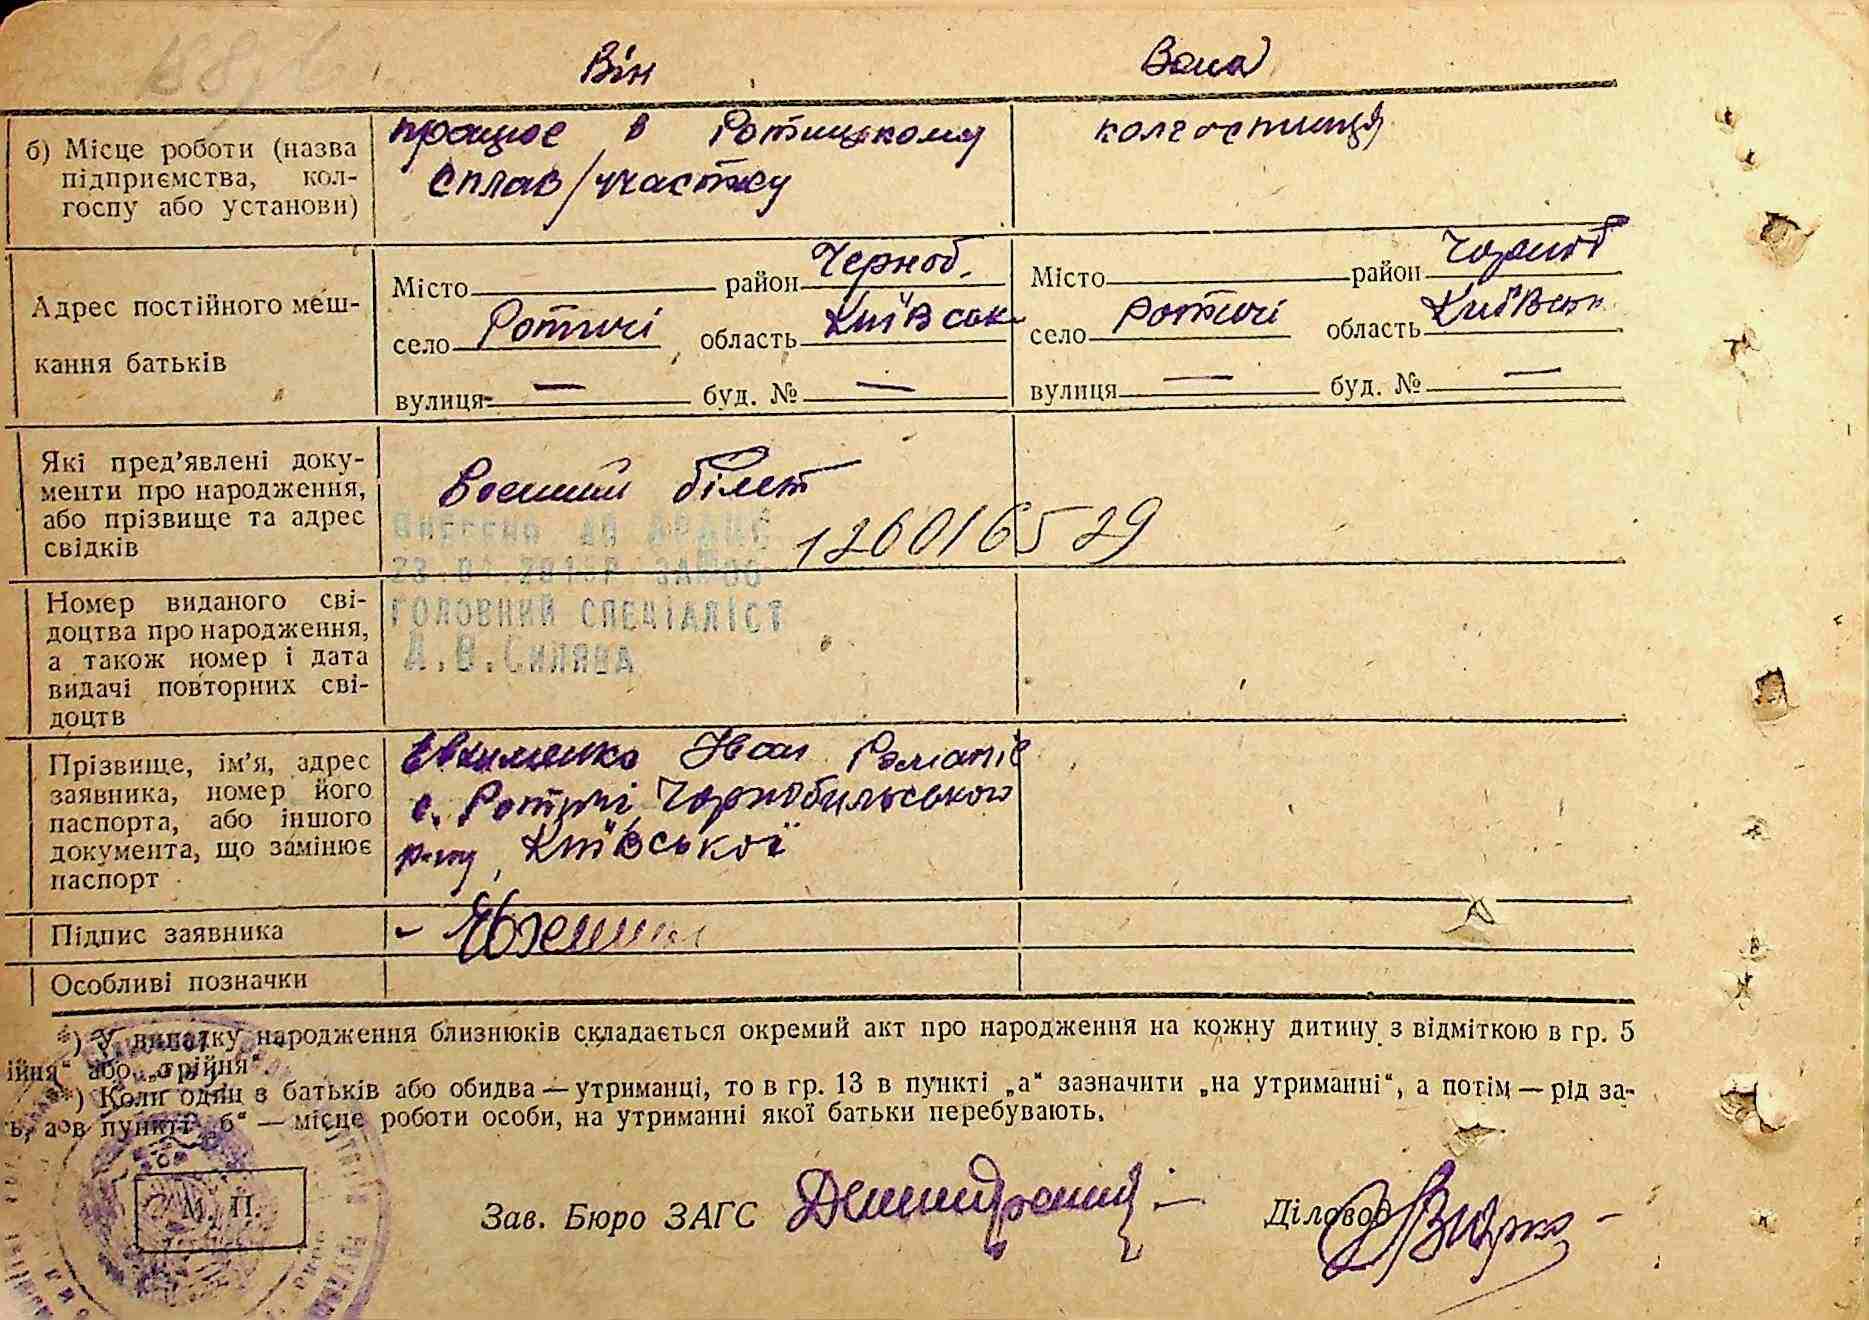 Він Вона
б) Місце роботи (назва підприємства, кол-госпу або установи)
працює в Ротицкому
сплав/участку
колгостниця
Адрес постійного меш-
кання батьків
Місто район Черноб.
село Ротичі область Київськ
вулиця — буд. № —
Місто район Чорноб
село Ротичі область Київськ
вулиця — буд. № —
Які пред'явлені доку-
менти про народження,
або прізвище та адрес
свідків
Воєнний білет
126016529
Внесено до ДРАЦС
ГОЛОВНИЙ СПЕЦІАЛІСТ
А.В.Силява
Номер виданого сві-
доцтва про народження,
а також номер і дата
видачі повторних сві-
доцтв
Прізвище, ім'я, адрес
заявника, номер його
паспорта, або іншого
документа, що замінює
паспорт
Євхименко Іван Романів
с. Ротичі, Чорнобильського
р-ну, Київської
Підпис заявника
Особливі позначки
*) У випадку народження близнюків складається окремий акт про народження на кожну дитину з відміткою в гр. 5
ійня“ або „трійня“.
*) Коли один з батьків або обидва — утриманці, то в гр. 13 в пункті „а“ зазначити „на утриманні“, а потім — рід за-
ь, а в пункті „б“ — місце роботи особи, на утриманні якої батьки перебувають.
М. П.
Зав. Бюро ЗАГС
Діловод